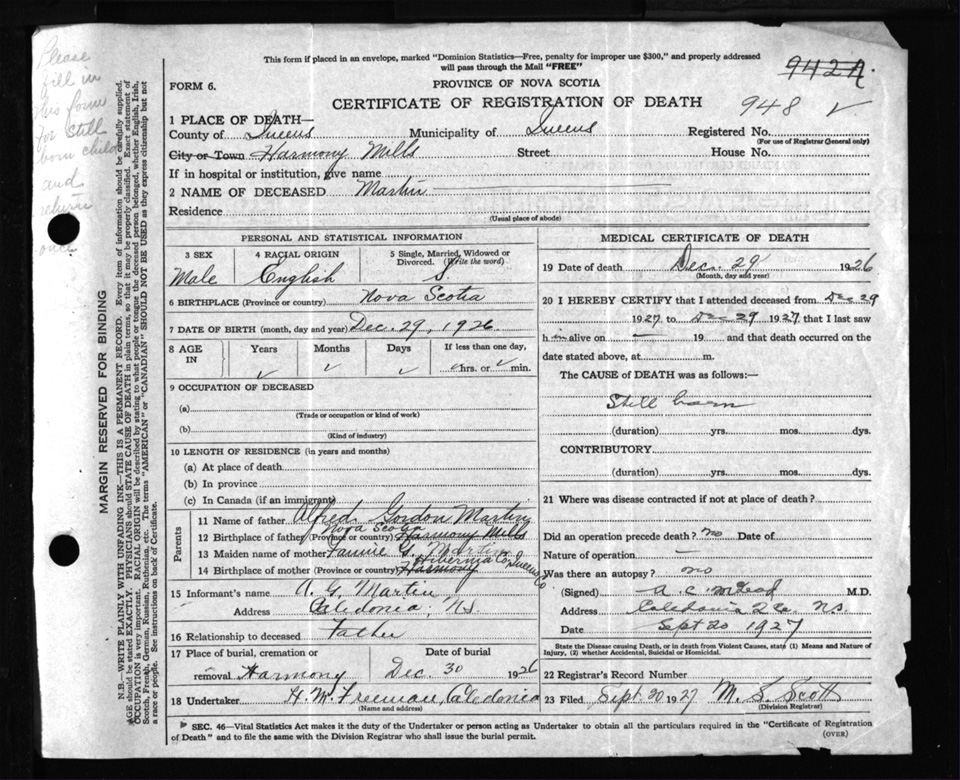 This form if placed in an envelope, marked "Dominion Statistics—Free, penalty for improper use $300," and properly addressed
will pass through the Mail "FREE"
942A
FORM 6.
PROVINCE OF NOVA SCOTIA
CERTIFICATE OF REGISTRATION OF DEATH
948 ✓
Please
fill in
this form
for still
born child
and
return
once
MARGIN RESERVED FOR BINDING
N.B.—WRITE PLAINLY WITH UNFADING INK—THIS IS A PERMANENT RECORD. Every item of information should be carefully supplied.
AGE should be stated EXACTLY. PHYSICIANS should STATE CAUSE OF DEATH in plain terms, so that it may be properly classified. Exact statement of
OCCUPATION is very important. RACIAL ORIGIN will be described by stating to what people or tongue the deceased person belonged, whether English, Irish,
Scotch, French, German, Russian, Ruthenian, etc. The terms "AMERICAN" or "CANADIAN" SHOULD NOT BE USED as they express citizenship but not
a race or people. See instructions on back of Certificate.
1 PLACE OF DEATH—
County of Queens Municipality of Queens Registered No.
(For use of Registrar General only)
City or Town Harmony Mills Street House No.
If in hospital or institution, give name
2 NAME OF DECEASED Martin
Residence
(Usual place of abode)
PERSONAL AND STATISTICAL INFORMATION
3 SEX
Male
4 RACIAL ORIGIN
English
5 Single, Married, Widowed or
Divorced. (Write the word)
S
6 BIRTHPLACE (Province or country) Nova Scotia
7 DATE OF BIRTH (month, day and year) Dec. 29, 1926
8 AGE
IN
Years
✓
Months
✓
Days
✓
If less than one day,
✓ hrs. or ✓ min.
9 OCCUPATION OF DECEASED
(a)
(Trade or occupation or kind of work)
(b)
(Kind of industry)
10 LENGTH OF RESIDENCE (in years and months)
(a) At place of death
(b) In province
(c) In Canada (if an immigrant)
Parents
11 Name of father Alfred Gordon Martin
12 Birthplace of father (Province or country) Nova Scotia Harmony Mills
13 Maiden name of mother Fannie G. Martin
14 Birthplace of mother (Province or country) Harmony Hibernia Queens Co
15 Informant's name A. G. Martin
Address Caledonia, N.S.
16 Relationship to deceased Father
17 Place of burial, cremation or
removal Harmony
Date of burial
Dec. 30 1926
18 Undertaker H. M. Freeman, Caledonia
(Name and address)
MEDICAL CERTIFICATE OF DEATH
19 Date of death Dec. 29 1926
(Month, day and year)
20 I HEREBY CERTIFY that I attended deceased from Dec 29
1927 to Dec 29 1927 that I last saw
him alive on — 19 and that death occurred on the
date stated above, at m.
The CAUSE of DEATH was as follows:—
Still born
(duration) yrs. mos. dys.
CONTRIBUTORY
(duration) yrs. mos. dys.
21 Where was disease contracted if not at place of death?
Did an operation precede death? no Date of
Nature of operation —
Was there an autopsy? no
(Signed) A. C. McLeod M.D.
Address Caledonia Q Co. N.S.
Date Sept 20 1927
State the Disease causing Death, or in death from Violent Causes, state (1) Means and Nature of
Injury, (2) whether Accidental, Suicidal or Homicidal.
22 Registrar's Record Number
23 Filed Sept. 20 1927 M. S. Scott
(Division Registrar)
SEC. 46—Vital Statistics Act makes it the duty of the Undertaker or person acting as Undertaker to obtain all the particulars required in the "Certificate of Registration
of Death" and to file the same with the Division Registrar who shall issue the burial permit.
(OVER)